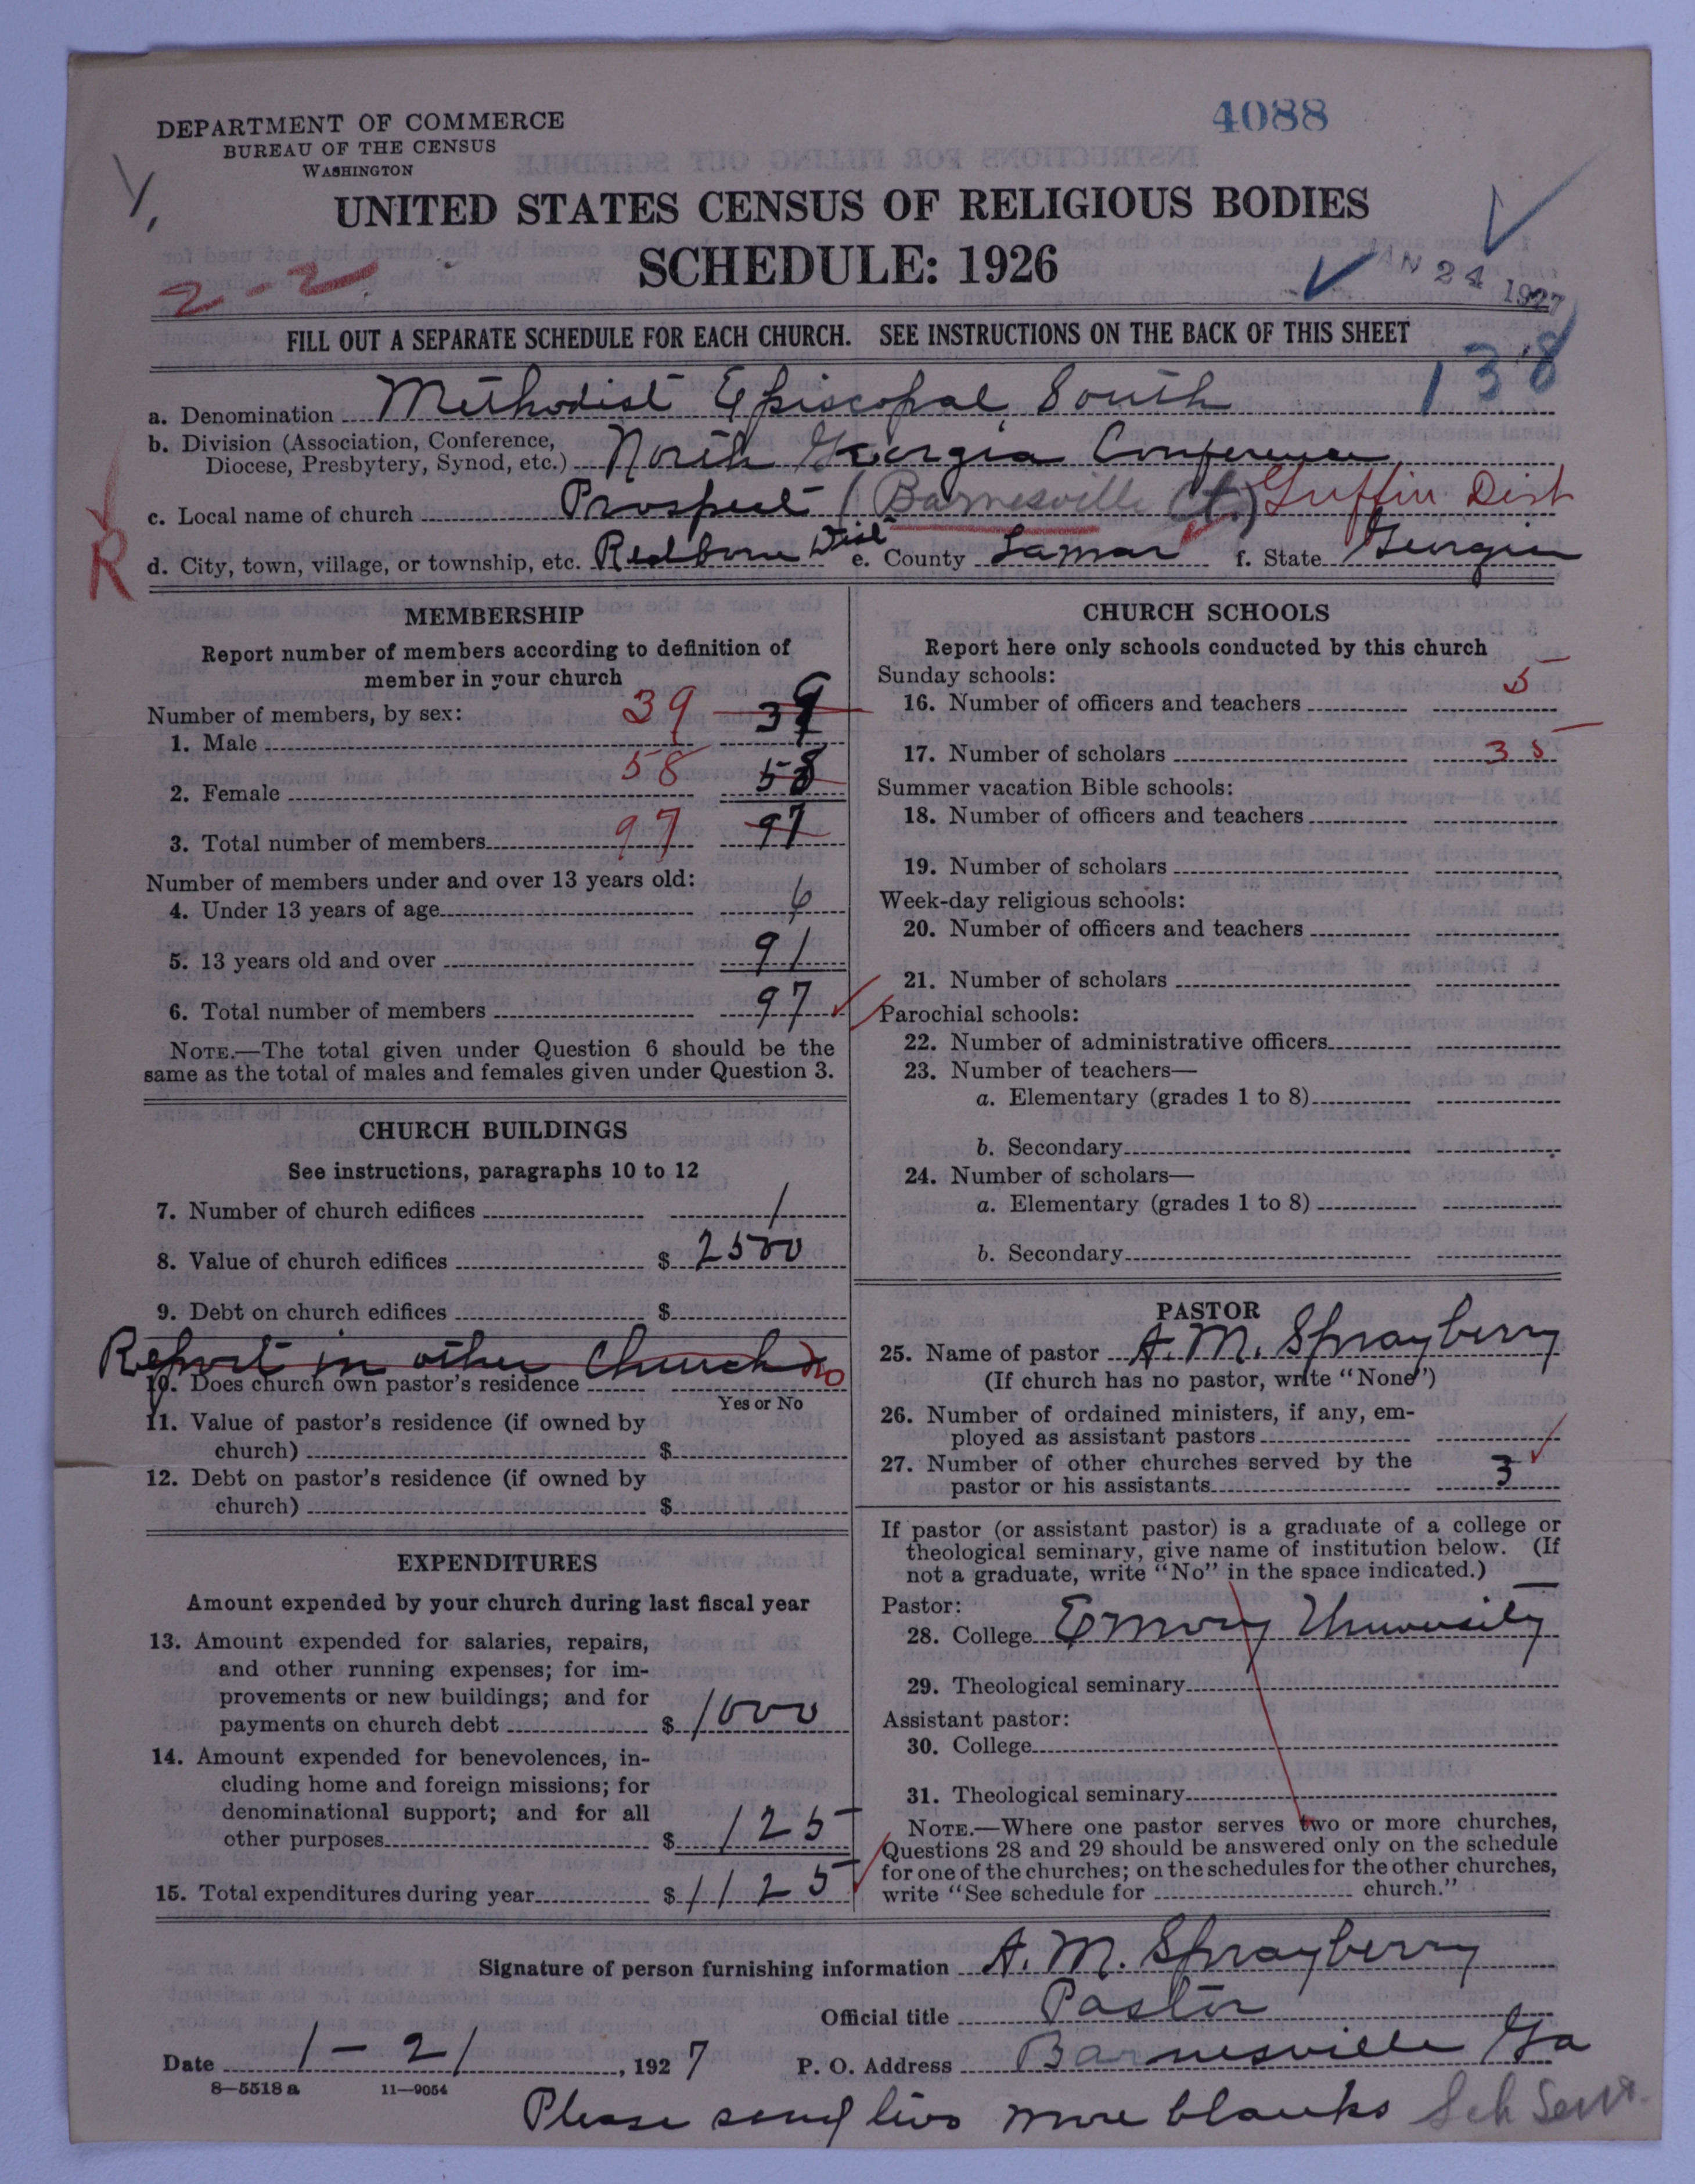 4088
DEPARTMENT OF COMMERCE
BUREAU OF THE CENSUS
WASHINGTON
UNITED STATES CENSUS OF RELIGIOUS BODIES
SCHEDULE: 1926
2-2
JAN 24 1927
FILL OUT A SEPARATE SCHEDULE FOR EACH CHURCH. SEE INSTRUCTIONS ON THE BACK OF THIS SHEET
138
a. Denomination Methodist Episcopal South
b. Division (Association, Conference, Diocese, Presbytery, Synod, etc.) North Georgia Conference
c. Local name of church Prospect (Barnesville Ct.) Griffin Dist
R
d. City, town, village, or township, etc. Redbone Dist e. County Lamar f. State Georgia
MEMBERSHIP
Report number of members according to definition of
member in your church
Number of members, by sex:
1. Male 39 39
2. Female 58 58
3. Total number of members 97 97
Number of members under and over 13 years old:
4. Under 13 years of age 6
5. 13 years old and over 91
6. Total number of members 97
NOTE.—The total given under Question 6 should be the
same as the total of males and females given under Question 3.
CHURCH BUILDINGS
See instructions, paragraphs 10 to 12
7. Number of church edifices 1
8. Value of church edifices $ 2500
9. Debt on church edifices $
Report in other Church no
10. Does church own pastor's residence
Yes or No
11. Value of pastor's residence (if owned by
church) $
12. Debt on pastor's residence (if owned by
church) $
EXPENDITURES
Amount expended by your church during last fiscal year
13. Amount expended for salaries, repairs,
and other running expenses; for im-
provements or new buildings; and for
payments on church debt $ 1000
14. Amount expended for benevolences, in-
cluding home and foreign missions; for
denominational support; and for all
other purposes $ 125
15. Total expenditures during year $ 1125
CHURCH SCHOOLS
Report here only schools conducted by this church
Sunday schools:
16. Number of officers and teachers 5
17. Number of scholars 35
Summer vacation Bible schools:
18. Number of officers and teachers
19. Number of scholars
Week-day religious schools:
20. Number of officers and teachers
21. Number of scholars
Parochial schools:
22. Number of administrative officers
23. Number of teachers—
a. Elementary (grades 1 to 8)
b. Secondary
24. Number of scholars—
a. Elementary (grades 1 to 8)
b. Secondary
PASTOR
25. Name of pastor A. M. Sprayberry
(If church has no pastor, write "None")
26. Number of ordained ministers, if any, em-
ployed as assistant pastors
27. Number of other churches served by the
pastor or his assistants 3
If pastor (or assistant pastor) is a graduate of a college or
theological seminary, give name of institution below. (If
not a graduate, write "No" in the space indicated.)
Pastor:
28. College Emory University
29. Theological seminary
Assistant pastor:
30. College
31. Theological seminary
NOTE.—Where one pastor serves two or more churches,
Questions 28 and 29 should be answered only on the schedule
for one of the churches; on the schedules for the other churches,
write "See schedule for church."
Signature of person furnishing information A. M. Sprayberry
Official title Pastor
Date 1-21, 1927 P. O. Address Barnesville Ga
8-5518 a 11-9054
Please send two more blanks Sch Sent.